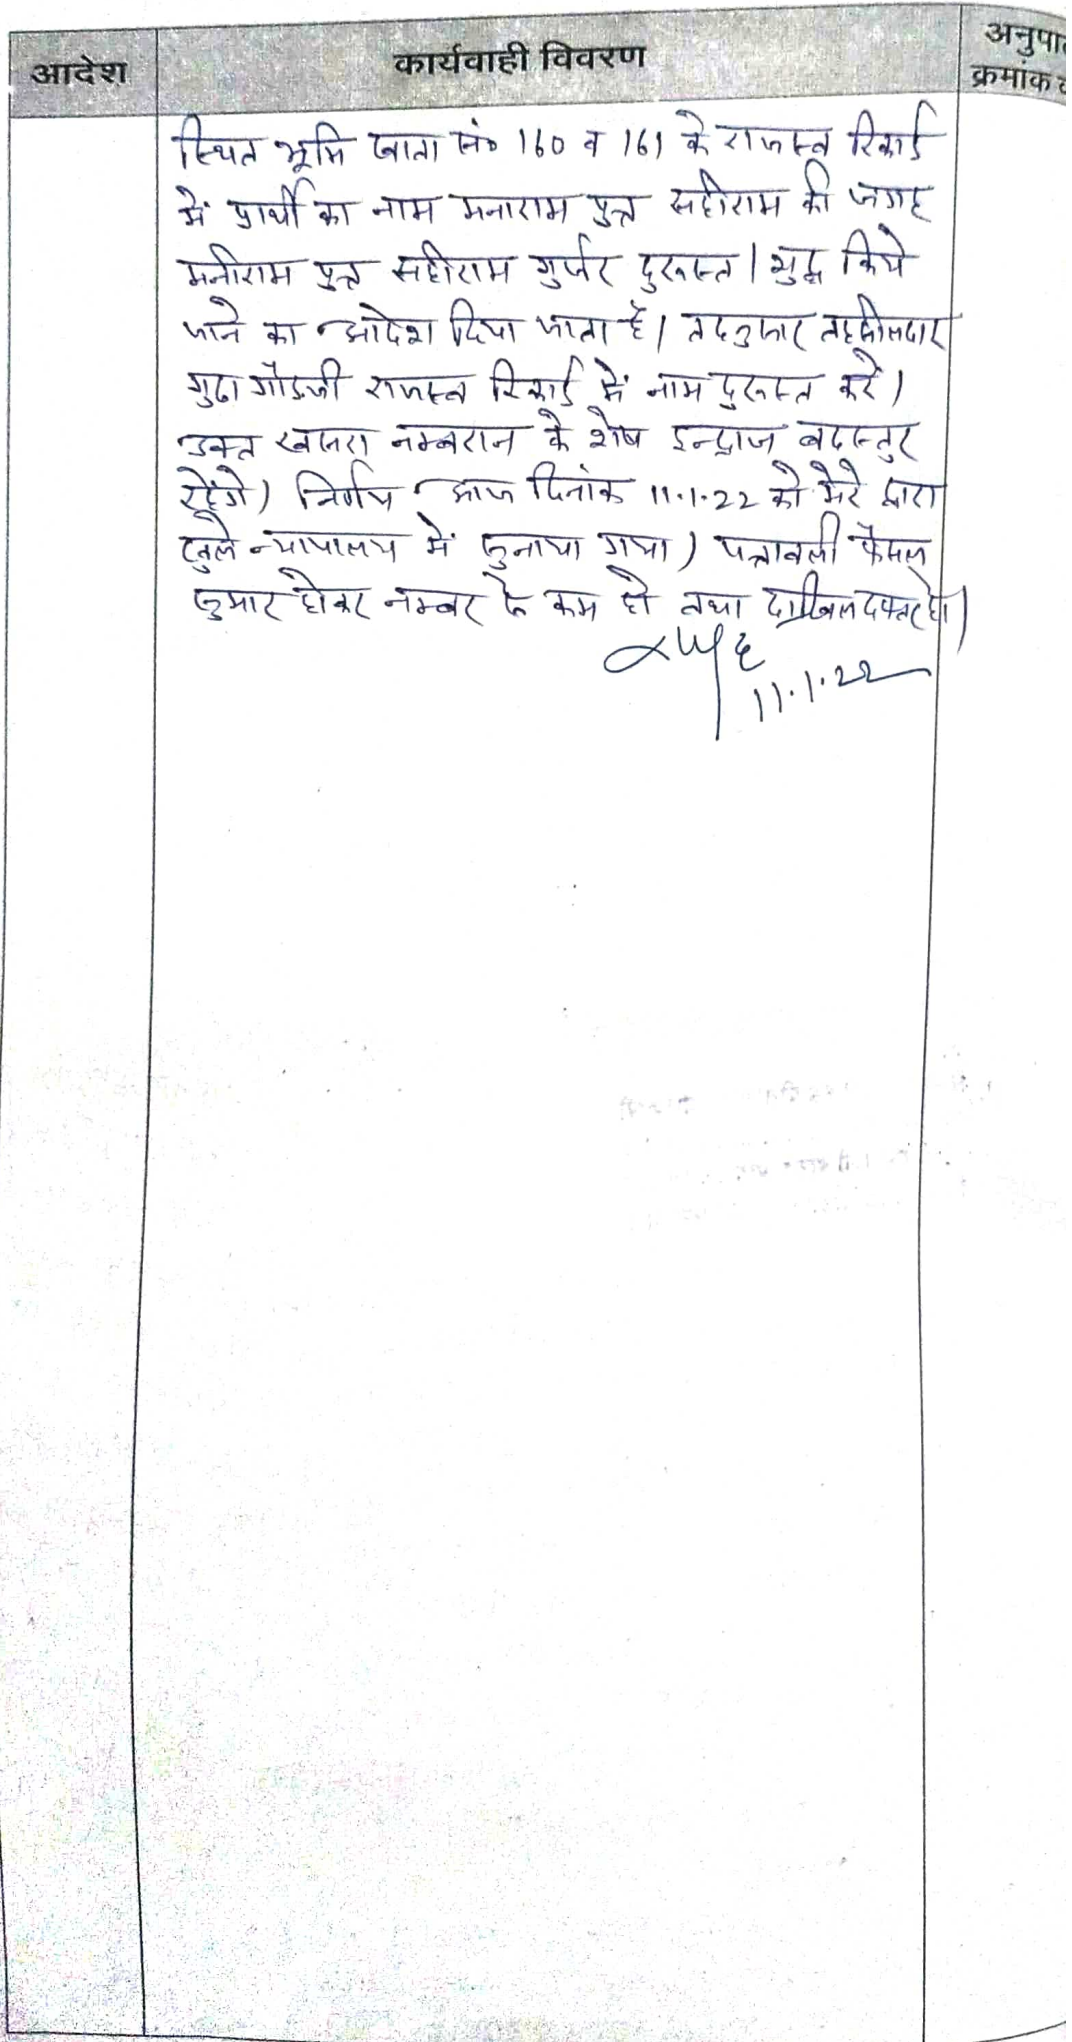 आदेश
कार्यवाही विवरण
अनुपा
क्रमांक
स्थित भूमि खाता सं० 160 व 161 के राजस्व रिकार्ड
में प्रार्थी का नाम मनाराम पुत्र सहीराम की जगह
मनीराम पुत्र सहीराम गुर्जर दुरूस्त / शुद्ध किये
जाने का आदेश दिया जाता है। तदनुसार तहसीलदार
गुढा गौडजी राजस्व रिकार्ड में नाम दुरूस्त करे।
उक्त खसरा नम्बरान के शेष इन्द्राज बदस्तुर
रहेंगे। निर्णय आज दिनांक 11.1.22 को मेरे द्वारा
खुले न्यायालय में सुनाया गया। पत्रावली फैसल
शुमार होकर नम्बर से कम हो तथा दाखिल दफ्तर हो।
11.1.22